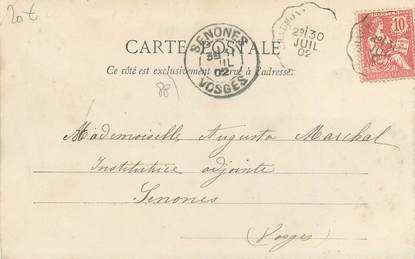 20€
CARTE POSTALE
Ce côté est exclusivement réservé à l'adresse.
SENONES
31
JUIL
02
VOSGES
2E 30
JUIL
02
10
Mademoiselle Augusta Marchal
Institutrice adjointe
Senones
(Vosges)